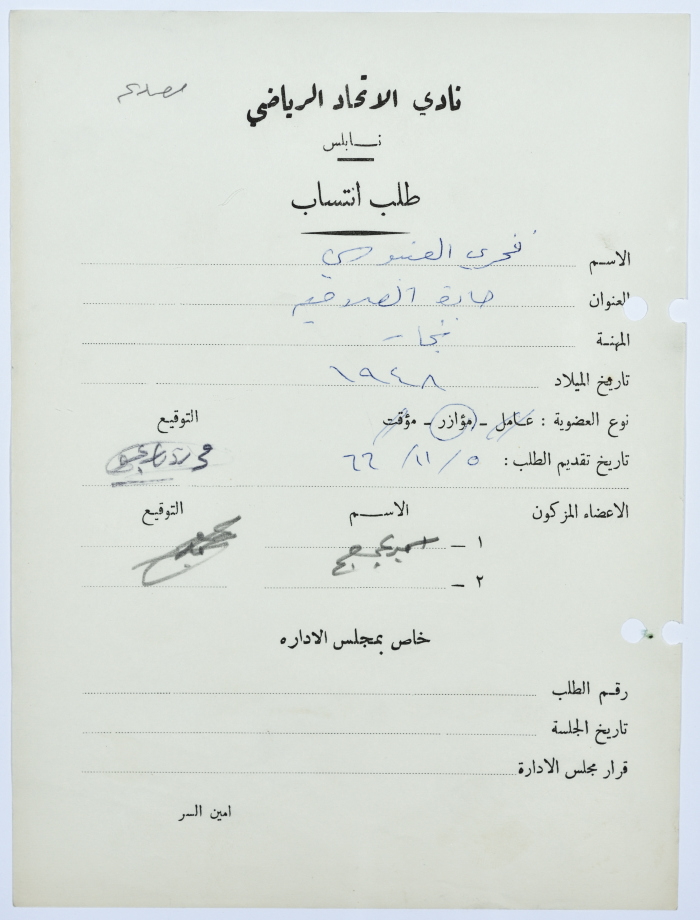 نادي الاتحاد الرياضي
نابلس
طلب انتساب
الاسم فخري
العنوان حارة
المهنة نجار
تاريخ الميلاد ١٩٤٨
نوع العضوية : عامل - مؤازر - مؤقت التوقيع
تاريخ تقديم الطلب : ٥ / ١١ / ٦٦
الاعضاء المزكون الاسم التوقيع
١ -
٢ -
خاص بمجلس الاداره
رقم الطلب
تاريخ الجلسة
قرار مجلس الادارة
امين السر